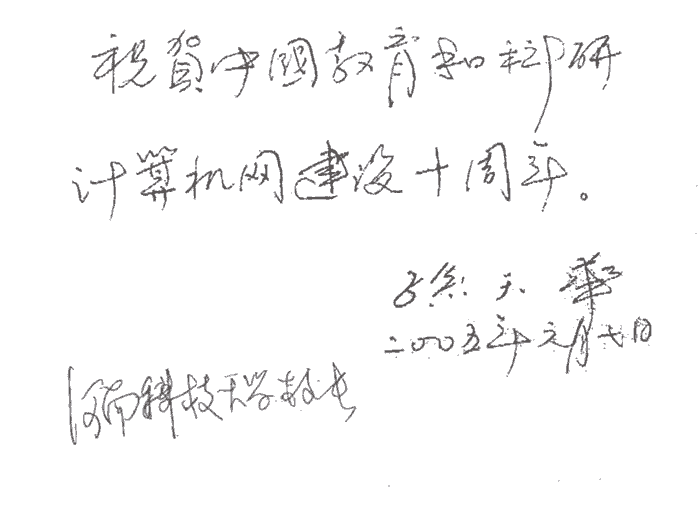 祝賀中國教育和科研
计算机网建设十周年。
孫天華
二〇〇五年元月七日
河南科技大学校长